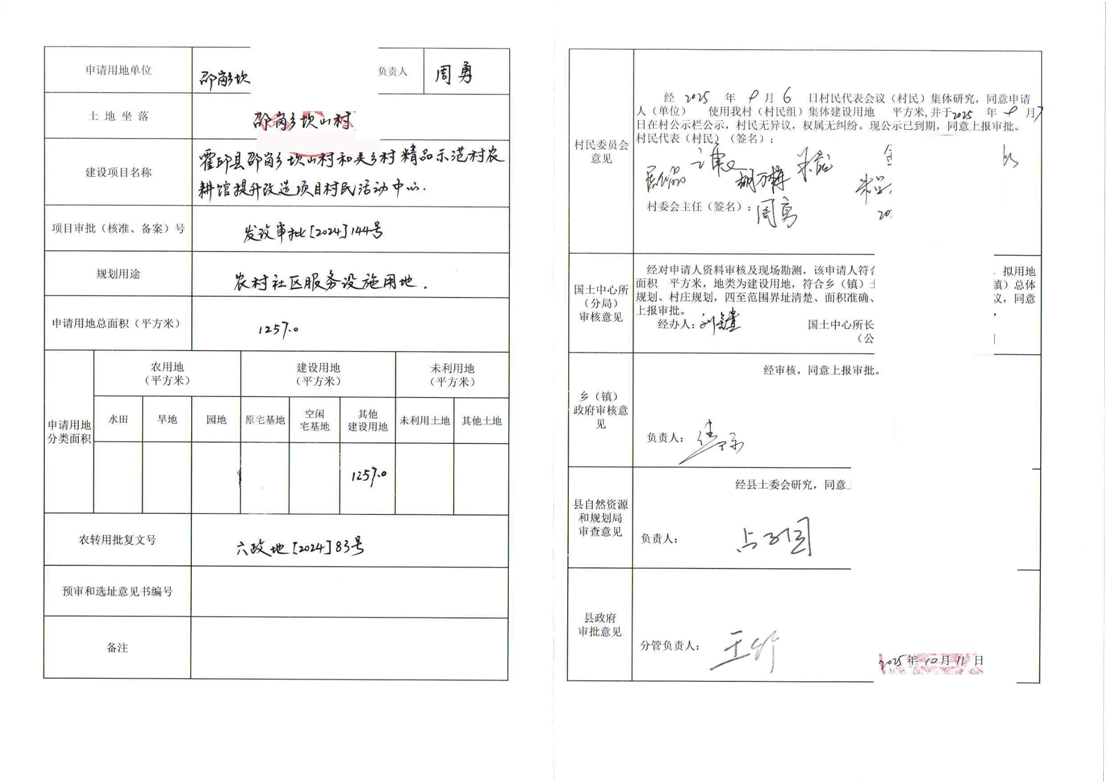 申请用地单位
邵岗乡坎
负责人
周勇
土地坐落
邵岗乡坎山村
建设项目名称
霍邱县邵岗乡坎山村和吴乡村精品示范村农
耕馆提升改造项目村民活动中心.
项目审批（核准、备案）号
发改审批[2024]144号
规划用途
农村社区服务设施用地.
申请用地总面积（平方米）
1257.0
申请用地
分类面积
农用地
（平方米）
建设用地
（平方米）
未利用地
（平方米）
水田
旱地
园地
原宅基地
空闲
宅基地
其他
建设用地
未利用土地
其他土地
1257.0
农转用批复文号
六政地[2024]83号
预审和选址意见书编号
备注
村民委员会
意见
经 2025 年 9 月 6 日村民代表会议（村民）集体研究，同意申请
人（单位） 使用我村（村民组）集体建设用地 平方米,并于2025 年 9 月 7
日在村公示栏公示，村民无异议，权属无纠纷。现公示已到期，同意上报审批。
村民代表（村民）（签名）：
村委会主任（签名）：周勇
20
国土中心所
（分局）
审核意见
经对申请人资料审核及现场勘测，该申请人符合
，拟用地
面积 平方米，地类为建设用地，符合乡（镇）土
镇）总体
规划、村庄规划，四至范围界址清楚、面积准确、
议，同意
上报审批。
经办人：
国土中心所长
（公
乡（镇）
政府审核意
见
经审核，同意上报审批。
负责人：
县自然资源
和规划局
审查意见
经县土委会研究，同意上
负责人：
县政府
审批意见
分管负责人：
2025年 10 月 11 日